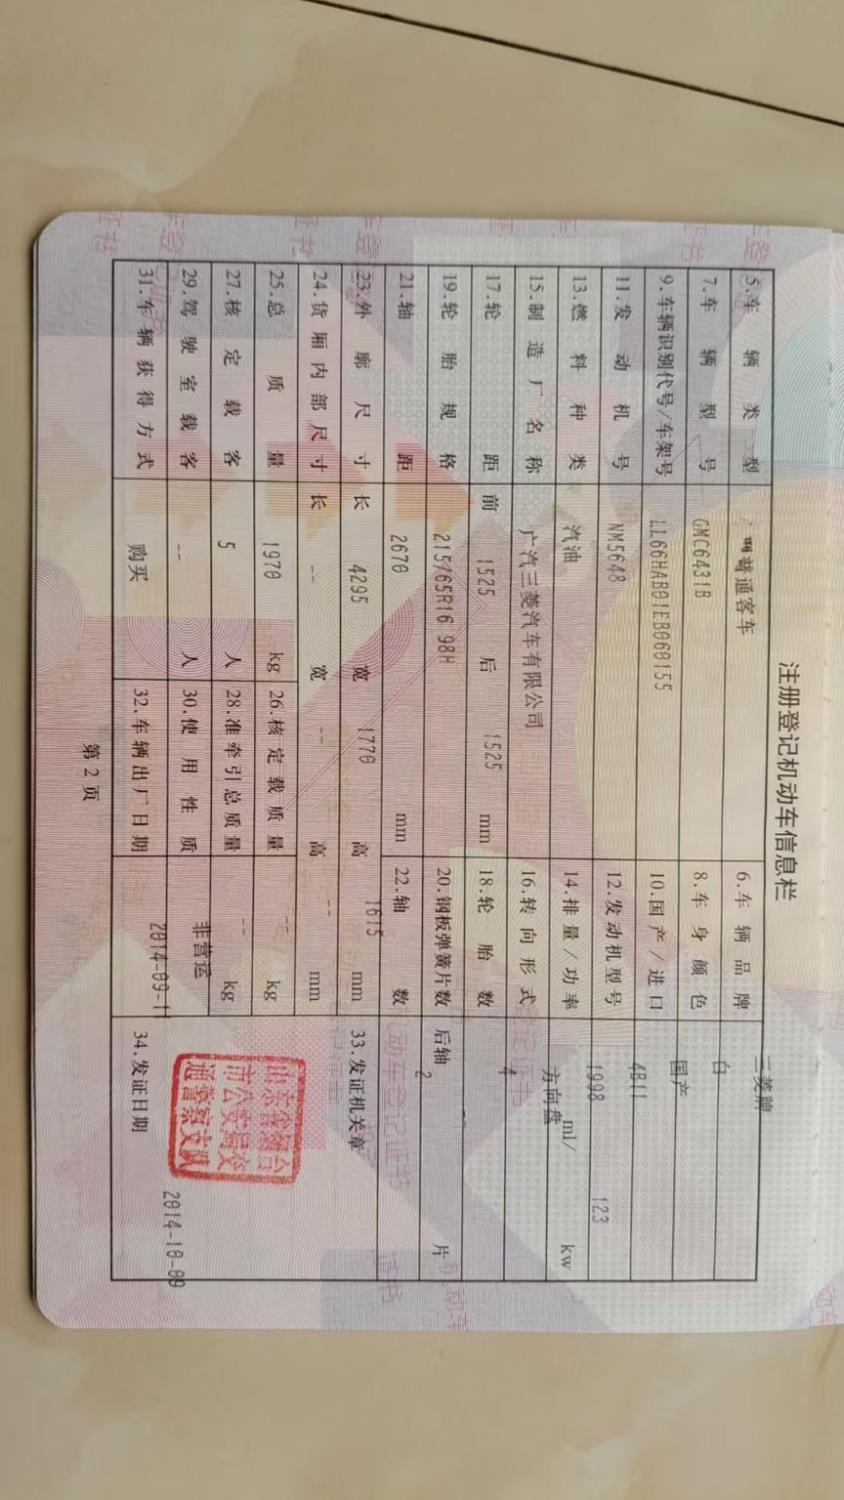 注册登记机动车信息栏
5.车辆类型 普通客车 6.车辆品牌 三菱牌
7.车辆型号 GMC6431B 8.车身颜色 白
9.车辆识别代号/车架号 LL66HAB01EB060155 10.国产/进口 国产
11.发动机号 NM5648 12.发动机型号 4B11
13.燃料种类 汽油 14.排量/功率 1998 ml/ 123 kw
15.制造厂名称 广汽三菱汽车有限公司 16.转向形式 方向盘
17.轮距 前 1525 后 1525 mm 18.轮胎数 4
19.轮胎规格 215/65R16 98H 20.钢板弹簧片数 后轴 -- 片
21.轴距 2670 mm 22.轴数 2
23.外廓尺寸 长 4295 宽 1770 高 1615 mm 33.发证机关章
24.货厢内部尺寸 长 -- 宽 -- 高 -- mm
25.总质量 1970 kg 26.核定载质量 -- kg
27.核定载客 5 人 28.准牵引总质量 -- kg
29.驾驶室载客 -- 人 30.使用性质 非营运
31.车辆获得方式 购买 32.车辆出厂日期 2014-09-11 34.发证日期 2014-10-09
山东省烟台
市公安局交
通警察支队
第2页